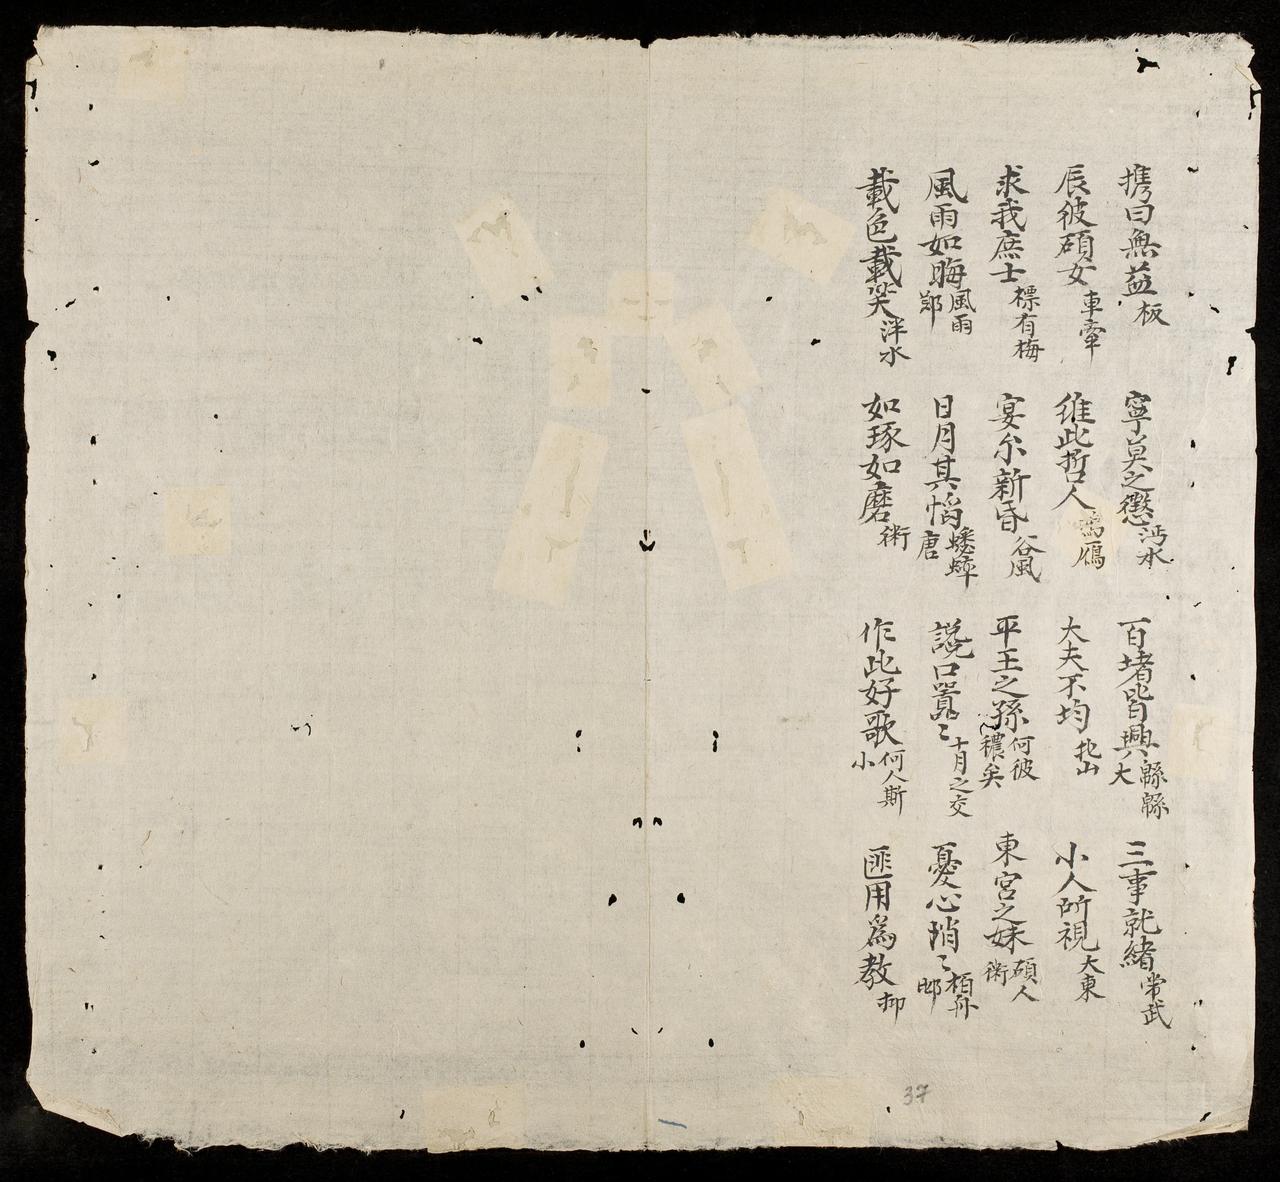 携曰無益 板 寧莫之懲 沔水 百堵皆興 緜緜 大 三事就緒 常武
辰彼碩女 車舝 維此哲人 鴻鴈 大夫不均 北山 小人所視 大東
求我庶士 標有梅 宴尓新昏 谷風 平王之孫 何彼穠矣 東宮之妹 碩人 衛
風雨如晦 風雨 鄭 日月其慆 蟋蟀 唐 讒口囂〻 十月之交 憂心悄〻 柏舟 邶
載色載笑 泮水 如琢如磨 衛 作此好歌 何人斯 小 匪用爲教 抑
37